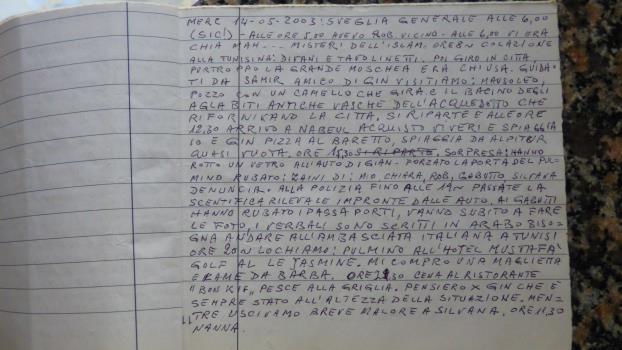 MERC 14-05-2003: SVEGLIA GENERALE ALLE 6,00
(SIC!) - ALLE ORE 5,00 AVEVO ROB. VICINO - ALLE 6,00 VI ERA
CHIA MAH... MISTERI DELL'ISLAM. ORE 8 COLAZIONE
ALLA TUNISINA: DIVANI E TAVOLINETTI. POI GIRO IN CITTA
PURTROPPO LA GRANDE MOSCHEA ERA CHIUSA. GUIDA-
TI DA SAMIR AMICO DI GIN VISITIAMO: MAUSOLEO,
POZZO CON UN CAMELLO CHE GIRA E IL BACINO DEGLI
AGLABITI ANTICHE VASCHE DELL'ACQUEDOTTO CHE
RIFORNIVANO LA CITTA. SI RIPARTE E ALLE ORE
12.30 ARRIVO A NABEUL ACQUISTO VIVERI E SPIAGGIA
IO E GIN PIZZA AL BARETTO, SPIAGGIA DA ALPITUR
QUASI VUOTA. ORE 15,30 SI RIPARTE. SORPRESA: HANNO
ROTTO UN VETRO ALL'AUTO DI GIAN - FORZATO LA PORTA DEL PUL-
MINO RUBATO: ZAINI DI: MIO, CHIARA, ROB, GABUTTO SILVANA
DENUNCIA. ALLA POLIZIA FINO ALLE 19 PASSATE LA
SCENTIFICA RILEVA LE IMPRONTE DALLE AUTO. AI GABUTTI
HANNO RUBATO I PASSAPORTI, VANNO SUBITO A FARE
LE FOTO, I VERBALI SONO SCRITTI IN ARABO BISO-
GNA ANDARE ALL'AMBASCIATA ITALIANA A TUNISI
ORE 20 LOCHIAMO: PULMINO ALL'HOTEL MUSTAFA'
GOLF AL LE JASMINE. MI COMPRO UNA MAGLIETTA
E LAME DA BARBA. ORE 21,30 CENA AL RISTORANTE
"BON KIF" PESCE ALLA GRIGLIA. PENSIERO X GIN CHE E'
SEMPRE STATO ALL'ALTEZZA DELLA SITUAZIONE. MEN-
TRE USCIVAMO BREVE MALORE A SILVANA. ORE 11,30
NANNA.